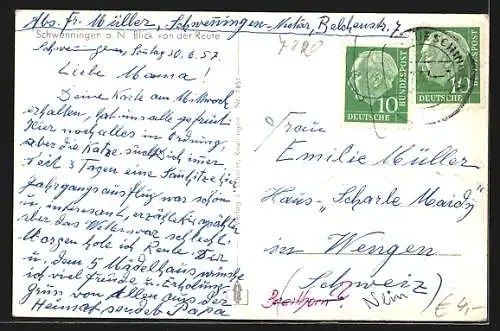 Abs. Fr. Müller, Schwenningen-Neckar, Belchenstr. 7
Schwenningen a. N. Blick von der Reute
7220
Schwenningen, Sonntag 30.6.57.
Liebe Mama!
Deine Karte am Mittwoch
erhalten, hat uns alle gefreut
Hier noch alles in Ordnung,
aber die Katze sucht dich immer
seit 3 Tagen eine Sauhitze hier
Jahrgangsausflug war schön
u. interessant, erzähle später
aber das Wetter war schlecht.
Morgen hole ich Rente. Dir
u. den 5 Mädelhaus wünsche
ich viel Freude u. Erholung
Gruss von Allen aus der
Heimat sendet Papa
10
DEUTSCHE
BUNDESPOST
10
DEUTSCHE
BUNDESPOST
Frau
Emilie Müller
Haus „Scharle Maidy"
in Wengen
(Schweiz)
Breithorn
Nein
€ 4,-